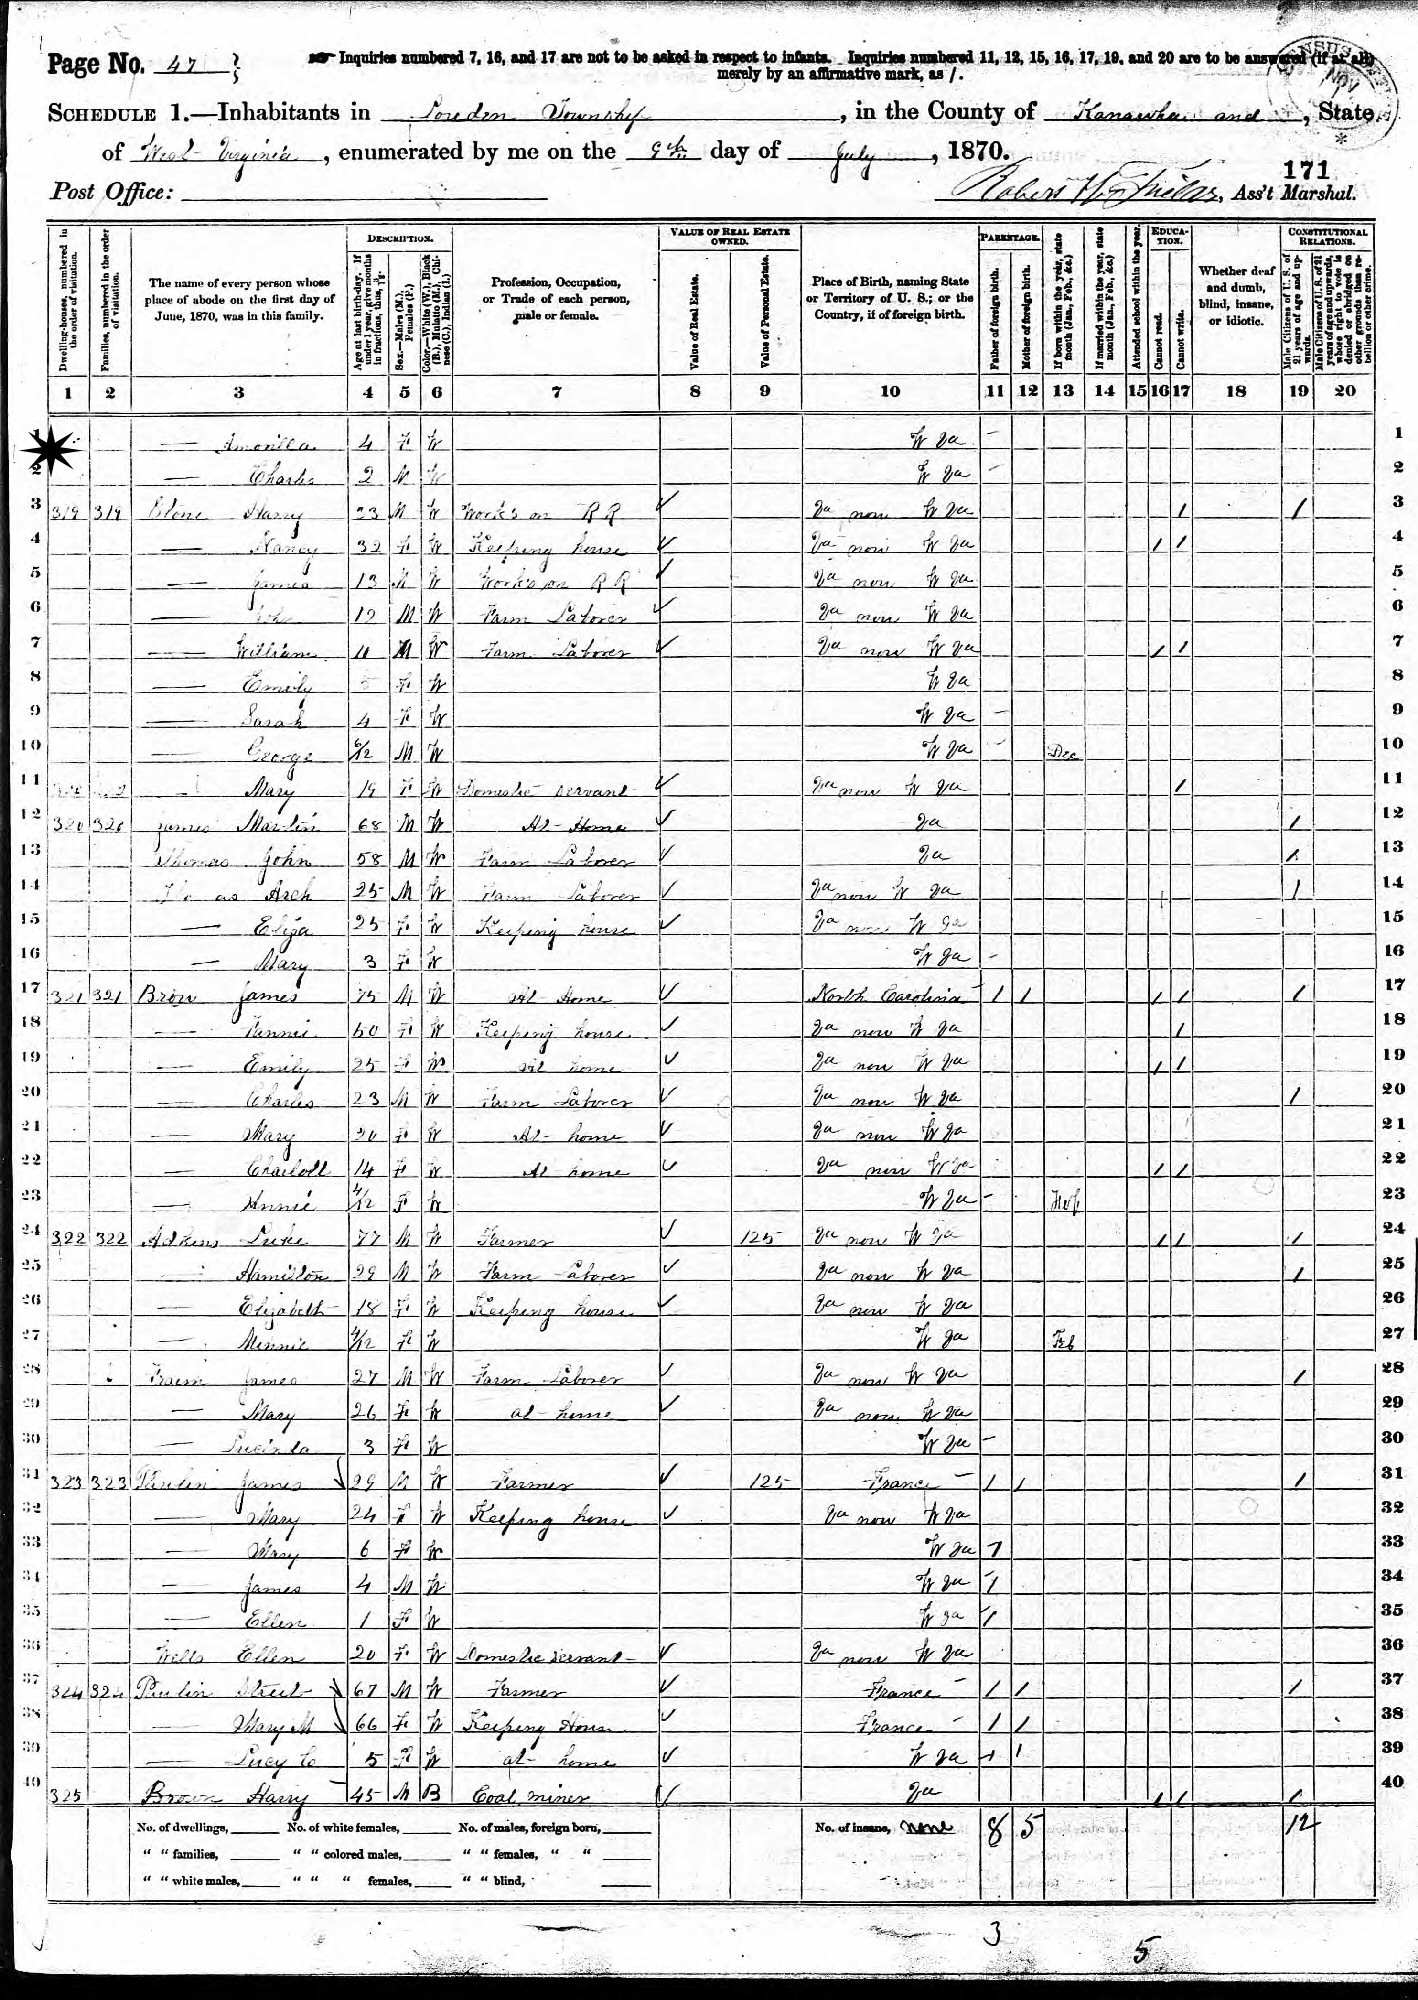 Page No. 47
Inquiries numbered 7, 16, and 17 are not to be asked in respect to infants. Inquiries numbered 11, 12, 15, 16, 17, 19, and 20 are to be answered (if at all)
merely by an affirmative mark, as /.
SCHEDULE 1.—Inhabitants in Louden Township, in the County of Kanawha and, State
of West Virginia, enumerated by me on the 9th day of July, 1870.
171
Post Office:
Robert, Ass't Marshal.
Dwelling-houses, numbered in the order of visitation.
Families, numbered in the order of visitation.
The name of every person whose place of abode on the first day of June, 1870, was in this family.
DESCRIPTION.
Age at last birth-day. If under 1 year, give months in fractions, thus, 3/12.
Sex.—Males (M.), Females (F.)
Color.—White (W.), Black (B.), Mulatto (M.), Chinese (C.), Indian (I.)
Profession, Occupation, or Trade of each person, male or female.
VALUE OF REAL ESTATE OWNED.
Value of Real Estate.
Value of Personal Estate.
Place of Birth, naming State or Territory of U. S.; or the Country, if of foreign birth.
PARENTAGE.
Father of foreign birth.
Mother of foreign birth.
If born within the year, state month (Jan., Feb., &c.)
If married within the year, state month (Jan., Feb., &c.)
Attended school within the year.
EDUCATION.
Cannot read.
Cannot write.
Whether deaf and dumb, blind, insane, or idiotic.
CONSTITUTIONAL RELATIONS.
Male Citizens of U. S. of 21 years of age and upwards.
Male Citizens of U. S. of 21 years of age and upwards, whose right to vote is denied or abridged on other grounds than rebellion or other crime.
1 2 3 4 5 6 7 8 9 10 11 12 13 14 15 16 17 18 19 20
1 — 4 F W W Va - 1
2 — Charles 2 M W W Va - 2
3 319 319 Harry 33 M W Works on R R ✓ Va now W Va / / 3
4 — Nancy 32 F W Keeping house ✓ Va now W Va / / 4
5 — James 13 M W Works on R R ✓ Va now W Va 5
6 — John 12 M W Farm Laborer ✓ Va now W Va 6
7 — William 11 M W Farm Laborer ✓ Va now W Va / / 7
8 — Emily 5 F W W Va 8
9 — Sarah 4 F W W Va - 9
10 — George 6/12 M W W Va - Dec 10
11 — Mary 19 F W Domestic servant ✓ Va now W Va / 11
12 320 320 James Martin 68 M W At Home ✓ Va / 12
13 Thomas John 58 M W Farm Laborer ✓ Va / 13
14 Thomas Arch 25 M W Farm Laborer ✓ Va now W Va / / 14
15 — Eliza 25 F W Keeping house ✓ Va now W Va 15
16 — Mary 3 F W W Va - 16
17 321 321 Brow James 75 M W At Home ✓ North Carolina / / / / / 17
18 — Fannie 50 F W Keeping house ✓ Va now W Va / 18
19 — Emily 25 F W At home ✓ Va now W Va / / 19
20 — Charles 23 M W Farm Laborer ✓ Va now W Va / 20
21 — Mary 20 F W At home ✓ Va now W Va 21
22 — Charlott 14 F W At home ✓ Va now W Va / / 22
23 — Annie 4/12 F W W Va - Feb 23
24 322 322 Adkins Luke 77 M W Farmer ✓ 125 Va now W Va / / / 24
25 — Hamilton 29 M W Farm Laborer ✓ Va now W Va / 25
26 — Elizabeth 18 F W Keeping house ✓ Va now W Va 26
27 — Minnie 4/12 F W W Va Feb 27
28 James 27 M W Farm Laborer ✓ Va now W Va / 28
29 — Mary 26 F W at home ✓ Va now W Va 29
30 — Lucinda 3 F W W Va - 30
31 323 323 Paulin James 29 M W Farmer ✓ 125 France / / / 31
32 — Mary 24 F W Keeping house ✓ Va now W Va 32
33 — Mary 6 F W W Va / 33
34 — James 4 M W W Va / 34
35 — Ellen 1 F W W Va / 35
36 Wells Ellen 20 F W Domestic servant ✓ Va now W Va 36
37 324 324 Paulin 67 M W Farmer ✓ France / / / 37
38 — Mary M 66 F W Keeping House ✓ France / / 38
39 — Lucy C 5 F W at home ✓ W Va / / 39
40 325 Brown Harry 45 M B Coal miner ✓ Va / / / 40
No. of dwellings, No. of white females, No. of males, foreign born, No. of insane, none 8 5 12
" " families, " " colored males, " " females, " "
" " white males, " " " females, " " blind,
3
5